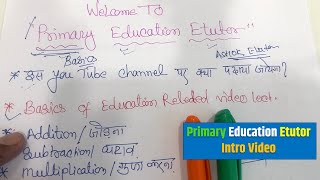 Welcome To
"Primary Education Etutor"
Basics
Ashok Etutor
* इस You Tube channel पर क्या पढाया जायेगा?
* Basics of Education Related video lect.
* Addition/जोड़ना
Subtraction/घटाव
* Multiplication/गुणा करना
Primary Education Etutor
Intro Video